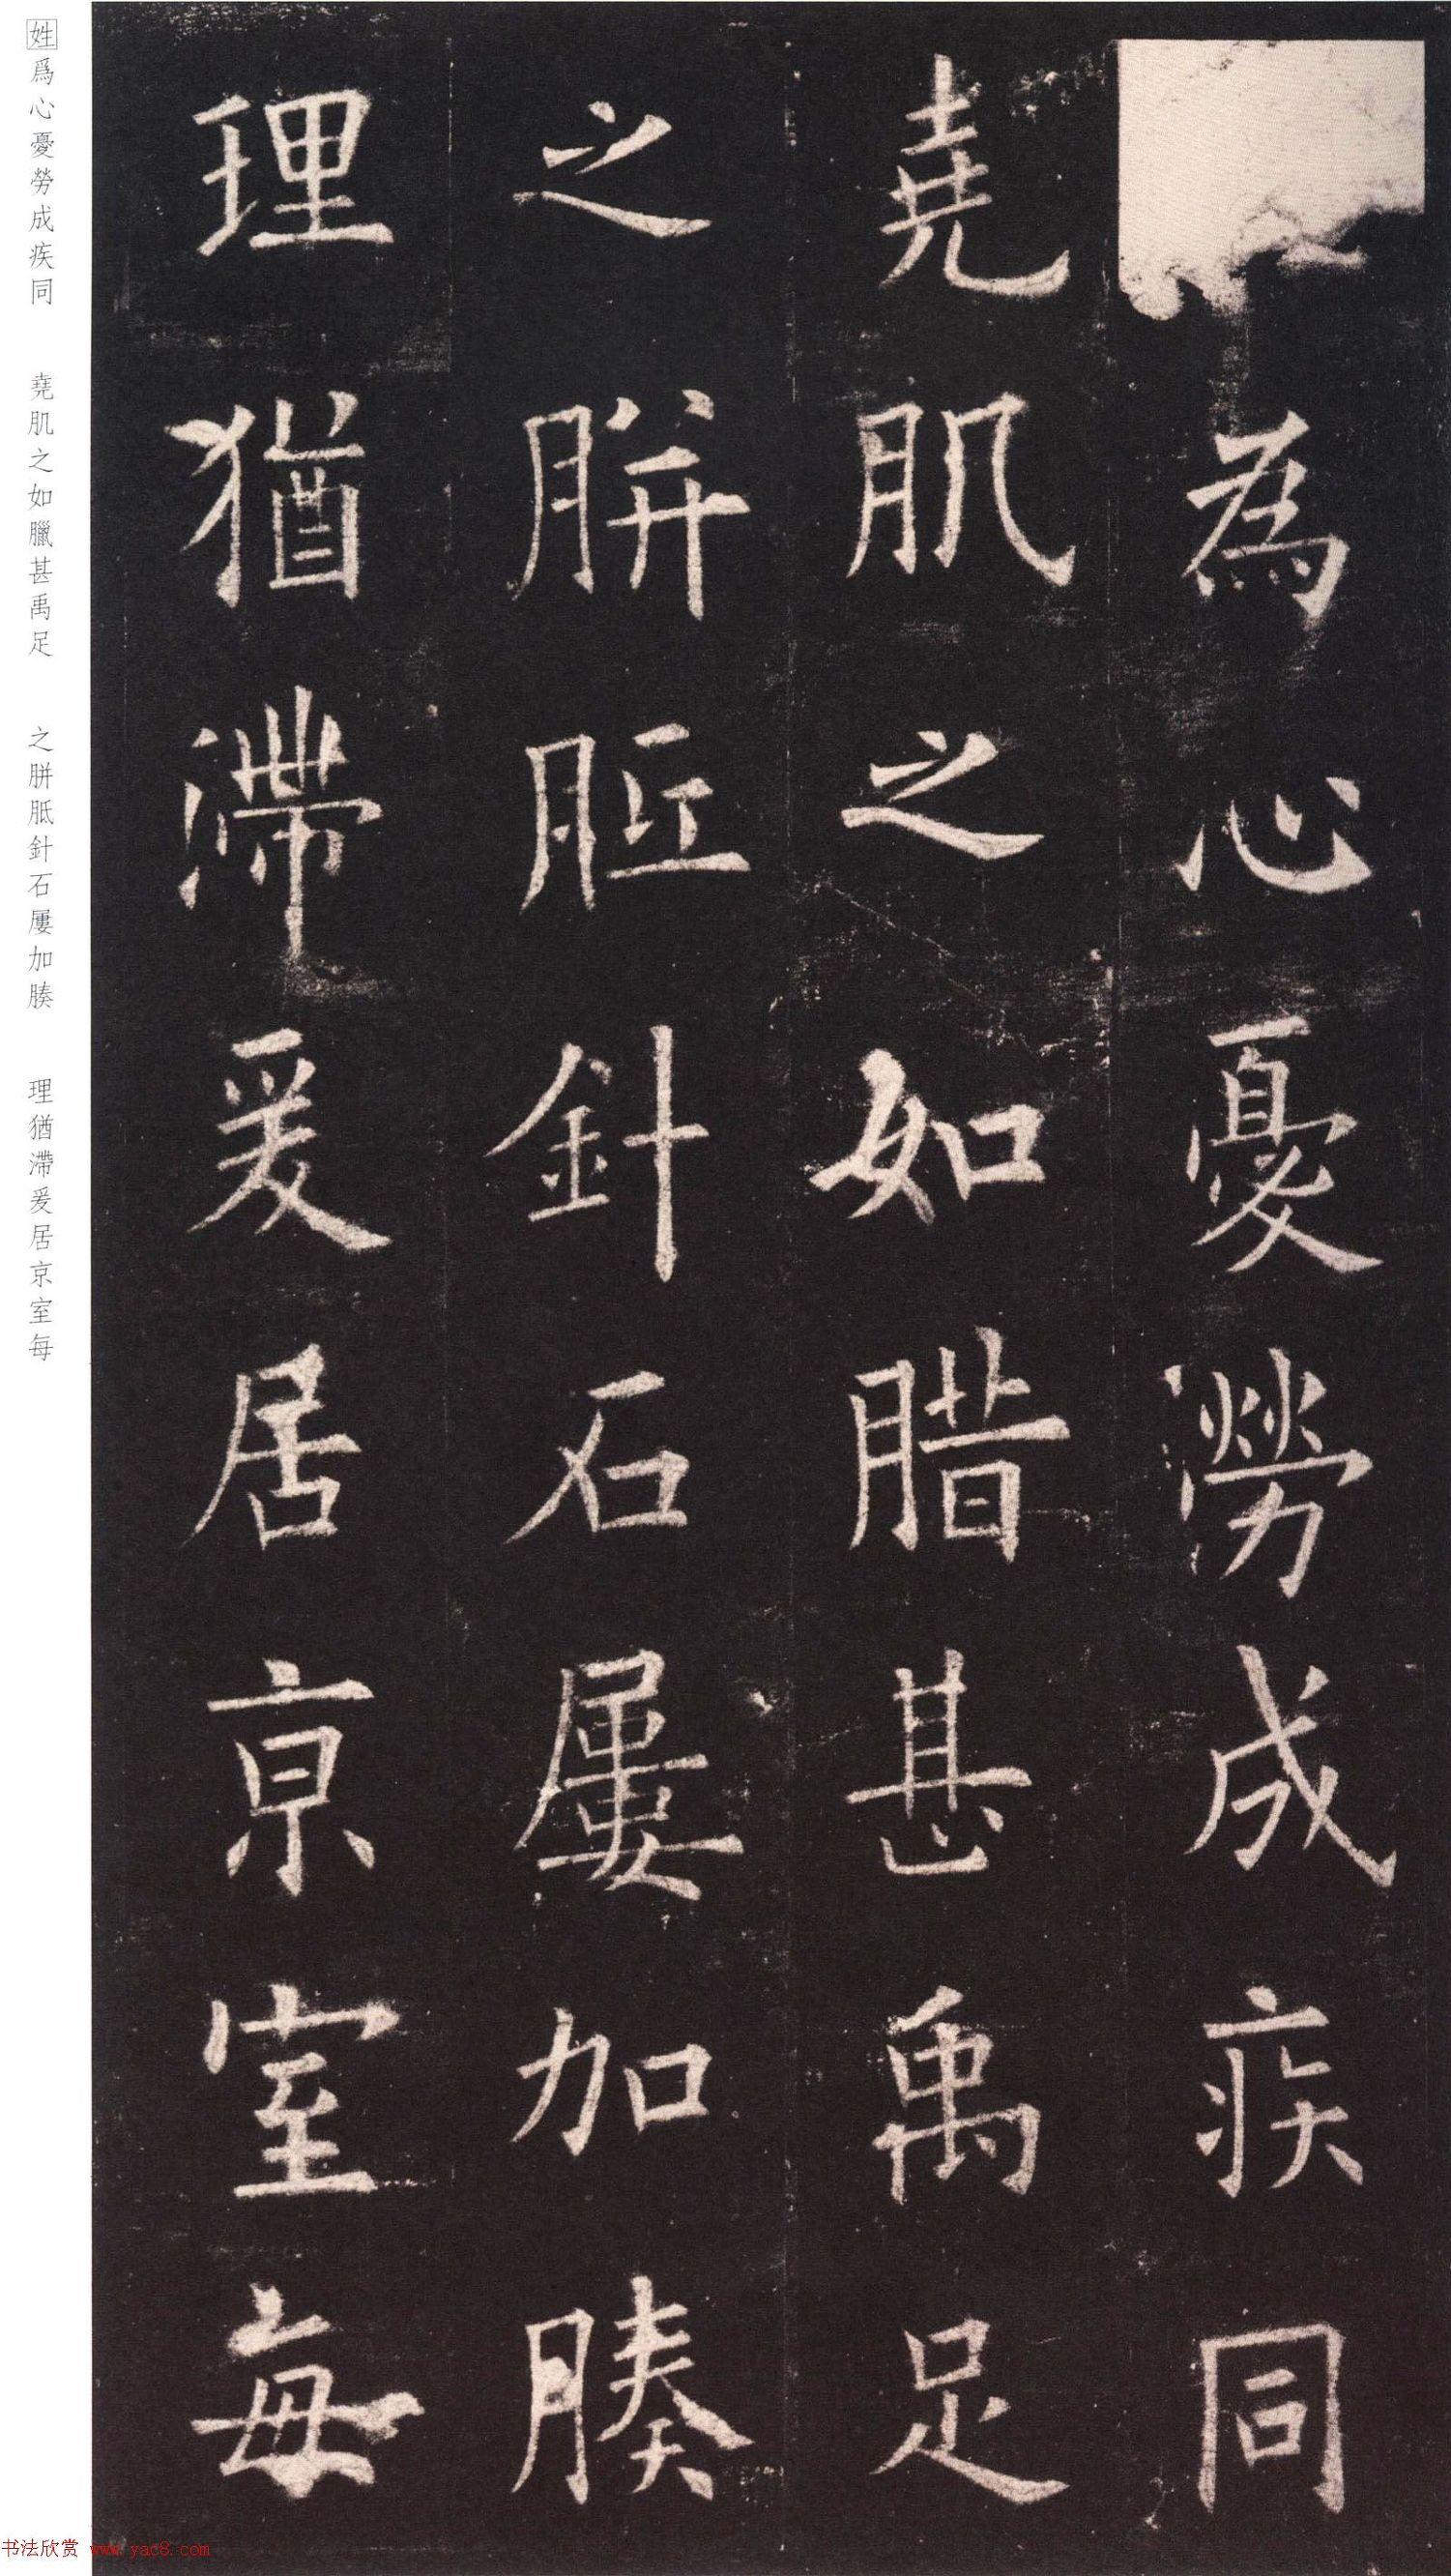 為心憂勞成疾同
堯肌之如腊甚禹足
之胼胝針石屢加腠
理猶滯爰居京室每
姓爲心憂勞成疾同　堯肌之如臘甚禹足　之胼胝針石屢加腠　理猶滯爰居京室每
书法欣赏 www.yac8.com